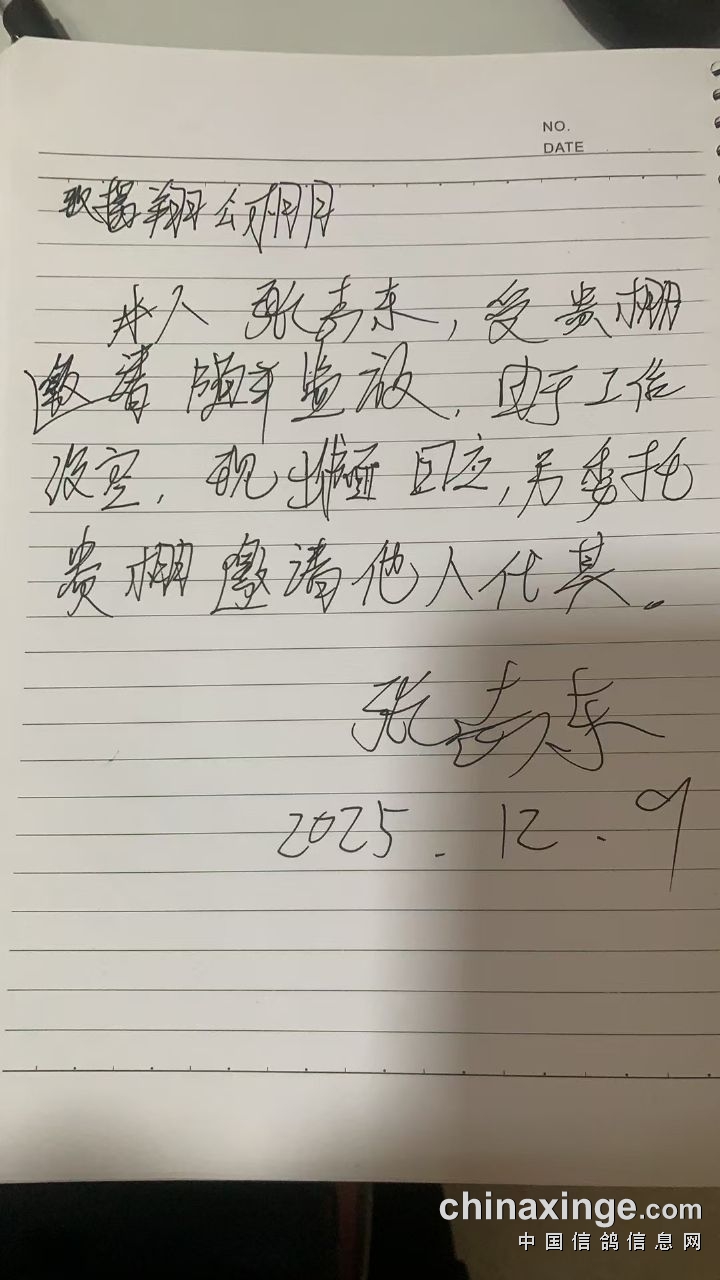 NO.
DATE
翔公棚
本人 张喜来，受贵棚
邀请 监放，由于工作
没空，现 回应，另委托
贵棚邀请他人代其。
张喜来
2025.12.9
chinaxinge.com
中国信鸽信息网